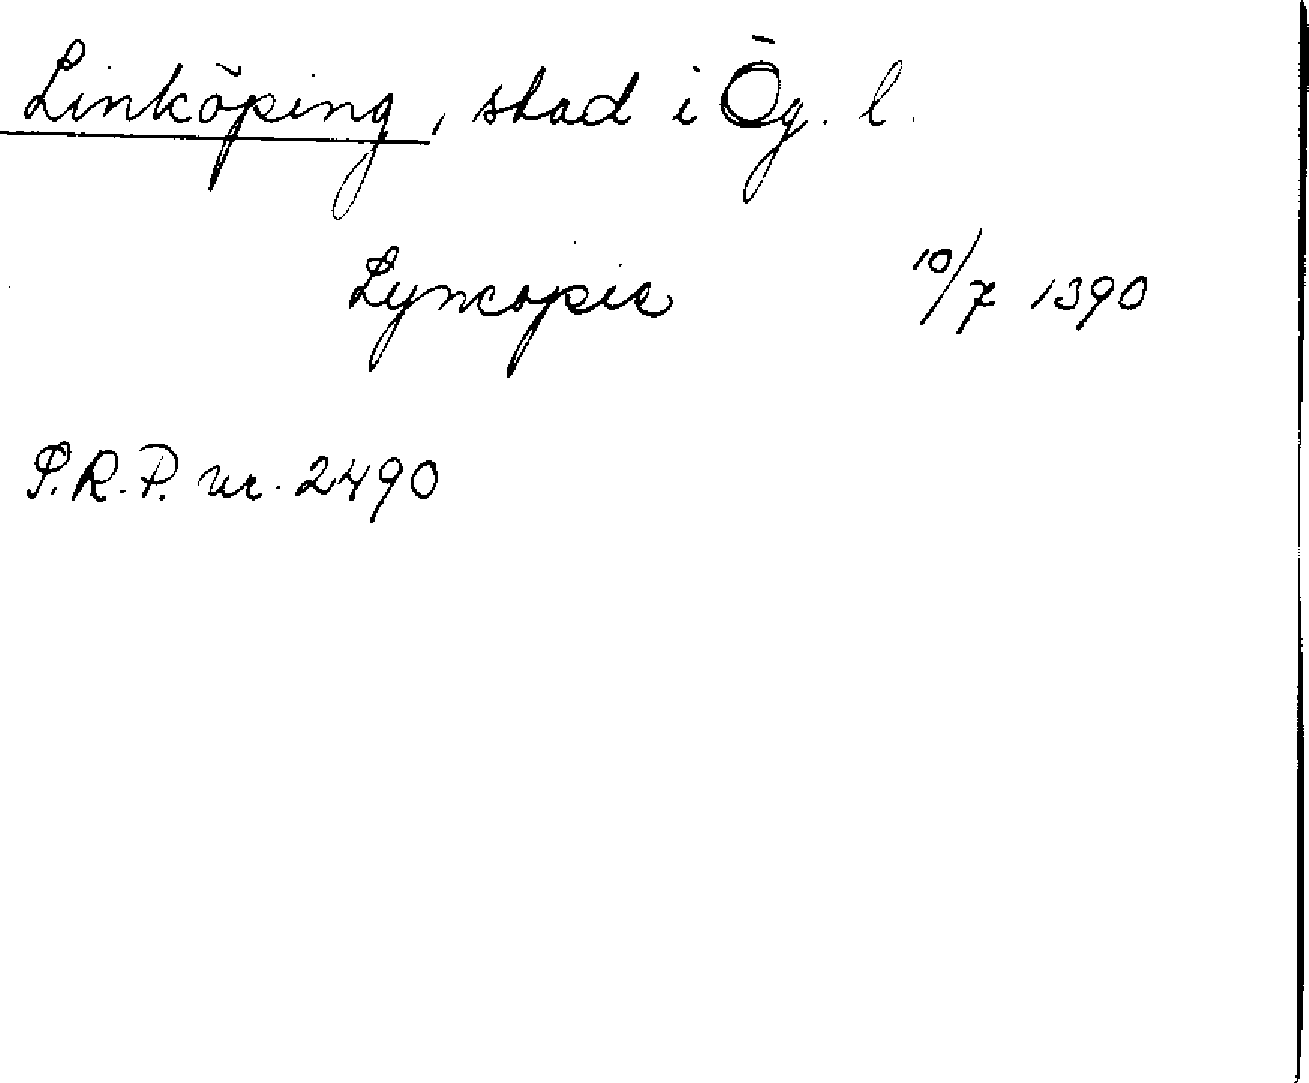 Linköping, stad i Ög. l.
Lyncopie 10/7 1390
S.R.P. nr. 2490